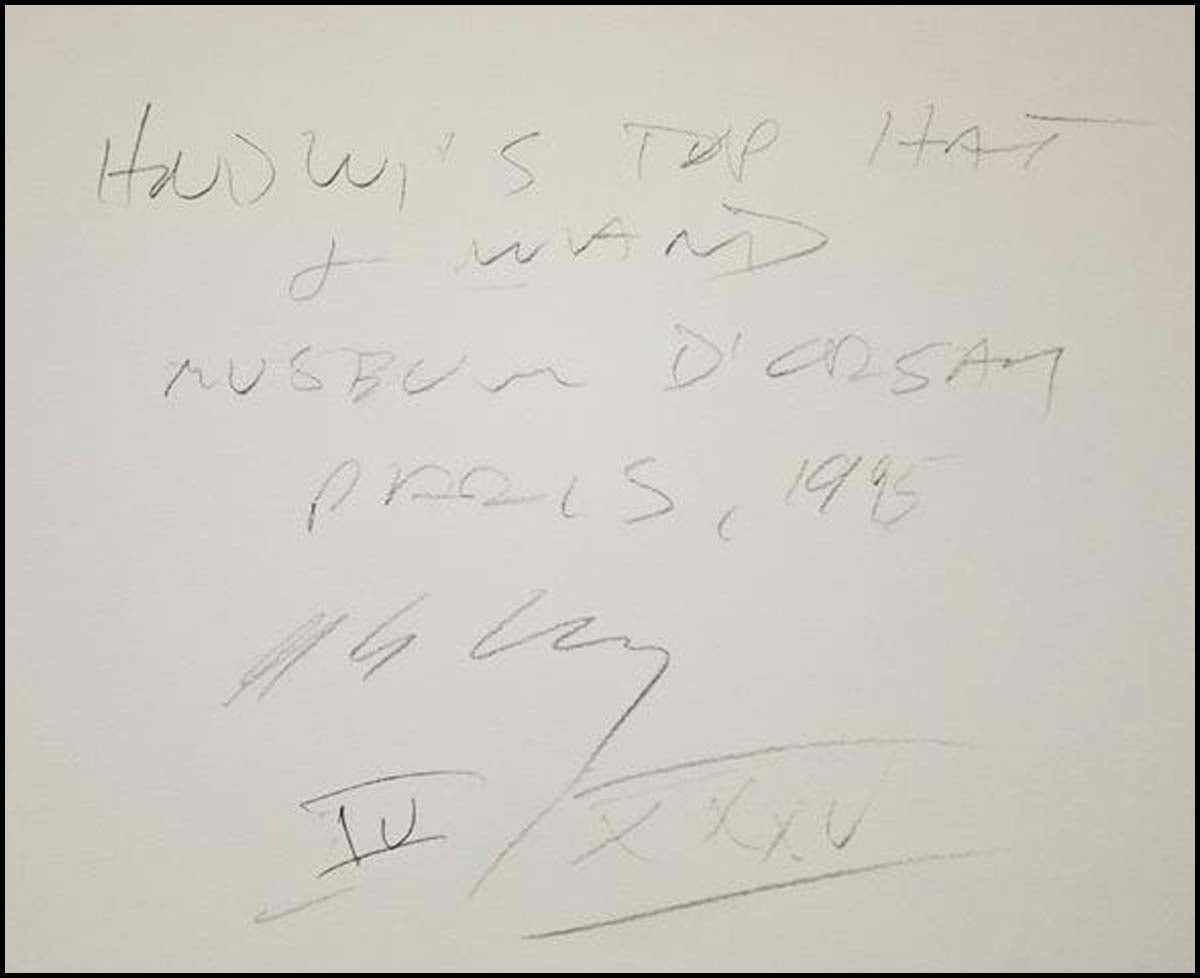 HOUDINI'S TOP HAT
& WAND
MUSEUM D'ORSAY
PARIS, 1995
IV / XXXV